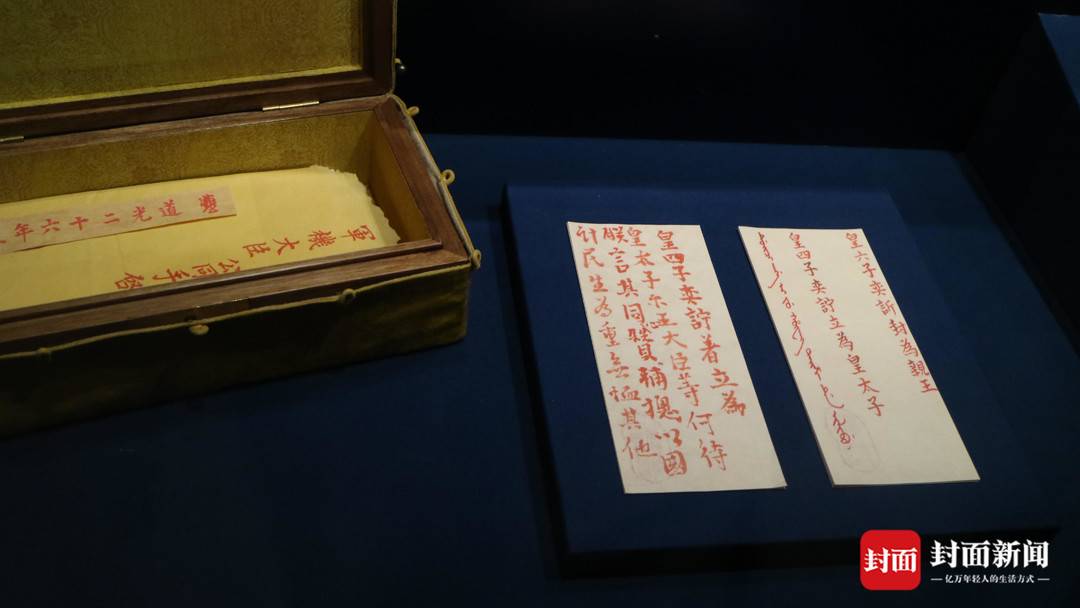 道光二十六年
軍機大臣
皇六子奕訢封為親王
皇四子奕詝立為皇太子
皇四子奕詝著立為
皇太子尔王大臣等何待
朕言其同心贊輔總以國
計民生為重無恤其他
封面
封面新闻
亿万年轻人的生活方式